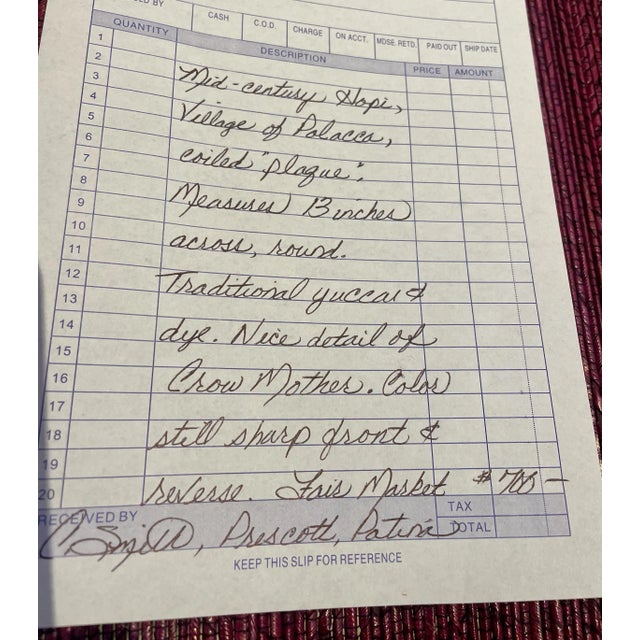 ED BY
CASH C.O.D. CHARGE ON ACCT. MDSE. RETD. PAID OUT SHIP DATE
QUANTITY DESCRIPTION PRICE AMOUNT
1
2 Mid-century Hopi,
3
4 Village of Polacca,
5
6 coiled "plaque".
7
8 Measures 13 inches
9
10 across, round.
11
12 Traditional yucca &
13
14 dye. Nice detail of
15
16 Crow Mother. Color
17
18 still sharp front &
19
20 reverse. Fair Market $700—
RECEIVED BY TAX
Prescott, Patina TOTAL
KEEP THIS SLIP FOR REFERENCE